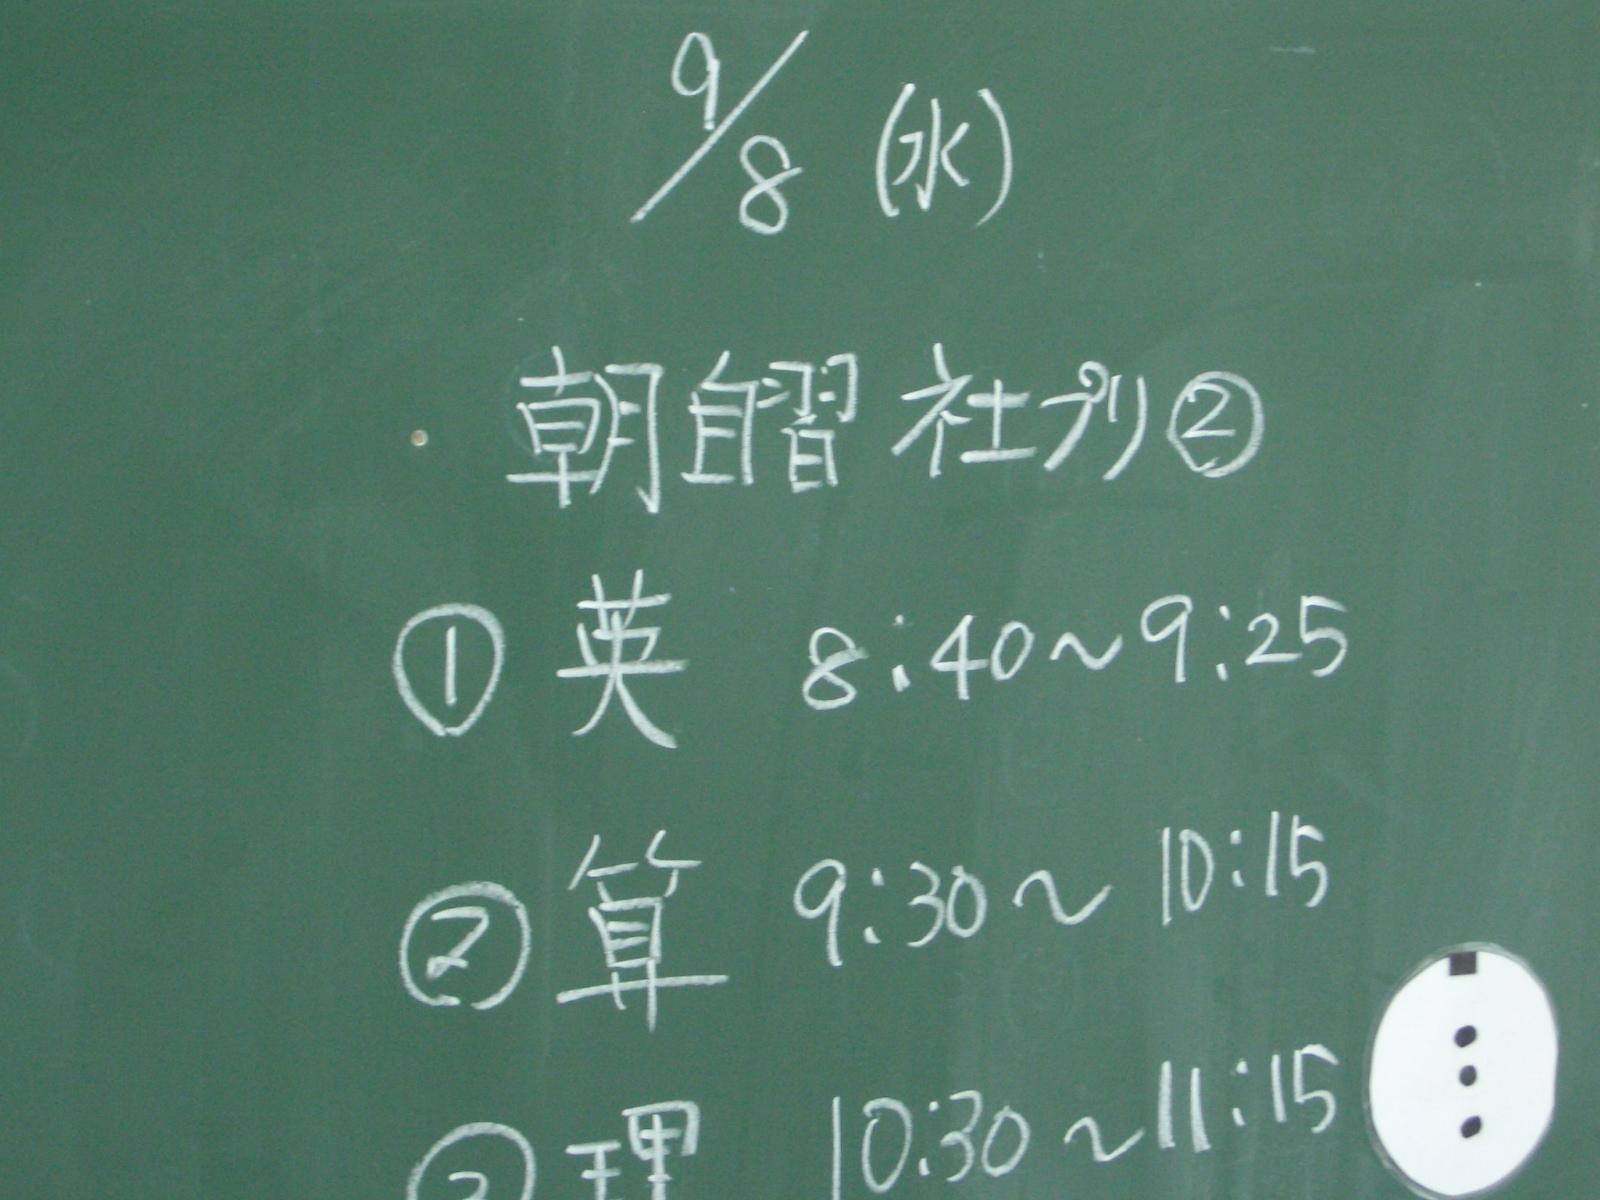 9/8 (水)
朝自習 社プリ②
① 英 8:40~9:25
② 算 9:30~10:15
③ 理 10:30~11:15